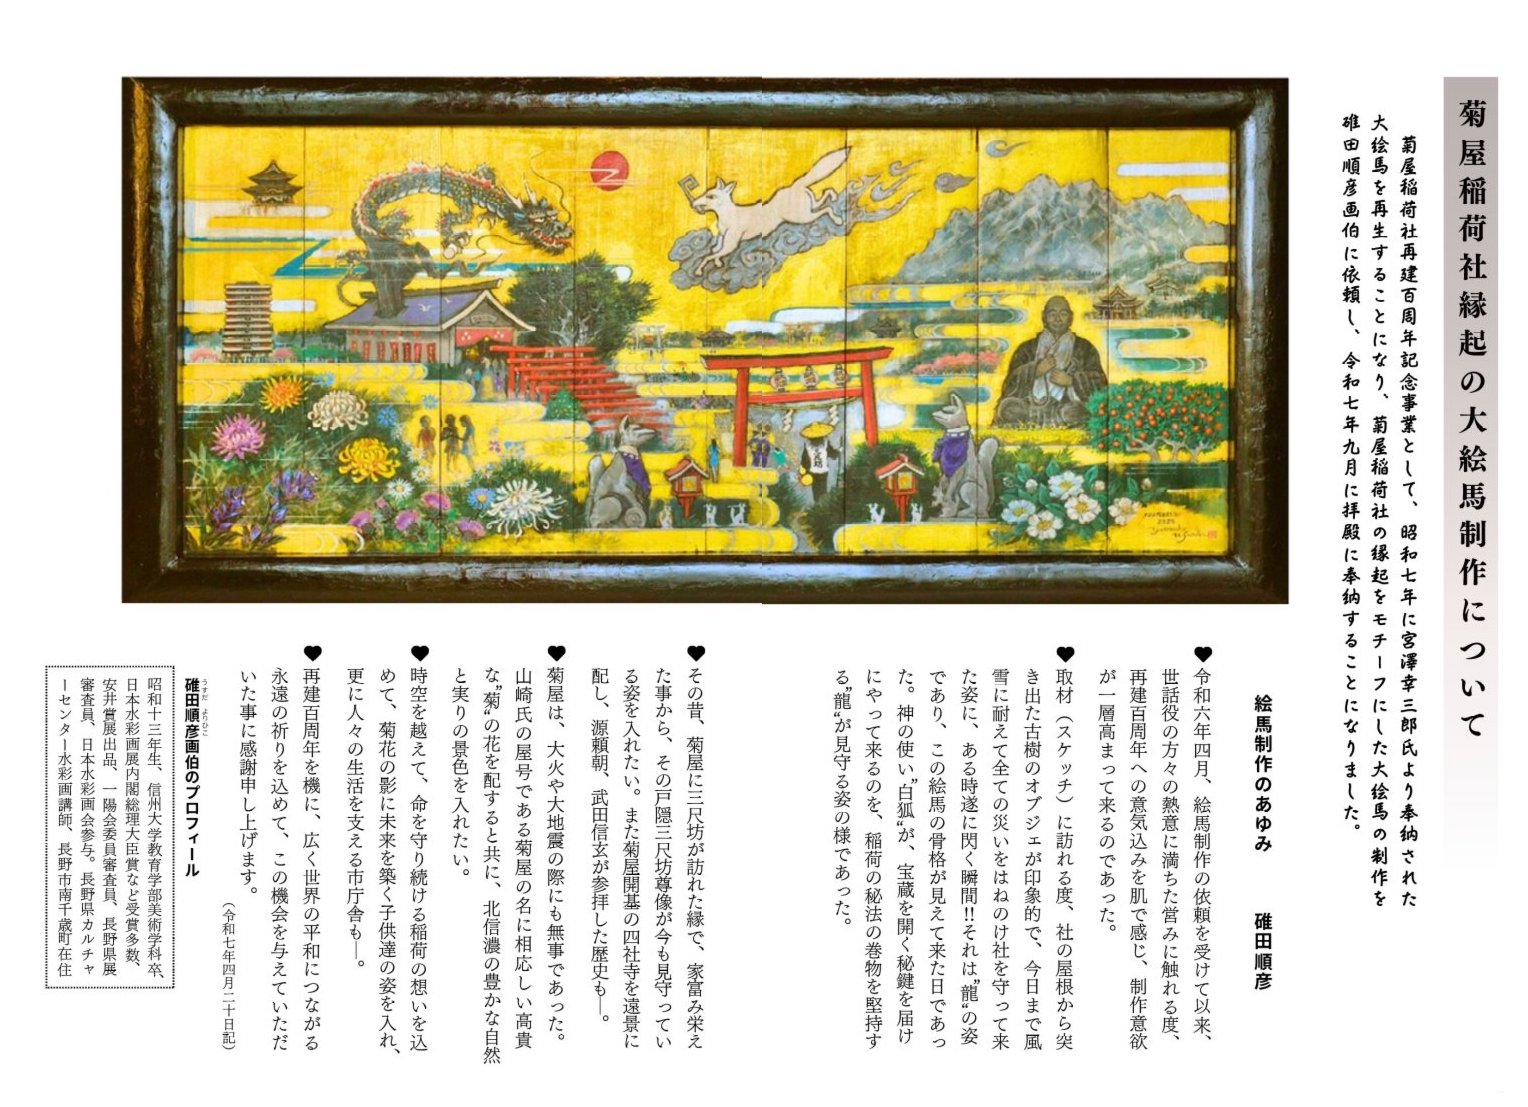 菊屋稲荷社縁起の大絵馬制作について
菊屋稲荷社再建百周年記念事業として、昭和七年に宮澤幸三郎氏より奉納された
大絵馬を再生することになり、菊屋稲荷社の縁起をモチーフにした大絵馬の制作を
碓田順彦画伯に依頼し、令和七年九月に拝殿に奉納することになりました。
絵馬制作のあゆみ　碓田順彦
♥令和六年四月、絵馬制作の依頼を受けて以来、
世話役の方々の熱意に満ちた営みに触れる度、
再建百周年への意気込みを肌で感じ、制作意欲
が一層高まって来るのであった。
♥取材（スケッチ）に訪れる度、社の屋根から突
き出た古樹のオブジェが印象的で、今日まで風
雪に耐えて全ての災いをはねのけ社を守って来
た姿に、ある時遂に閃く瞬間!!それは〝龍〟の姿
であり、この絵馬の骨格が見えて来た日であっ
た。神の使い〝白狐〟が、宝蔵を開く秘鍵を届け
にやって来るのを、稲荷の秘法の巻物を堅持す
る〝龍〟が見守る姿の様であった。
♥その昔、菊屋に三尺坊が訪れた縁で、家富み栄え
た事から、その戸隠三尺坊尊像が今も見守ってい
る姿を入れたい。また菊屋開基の四社寺を遠景に
配し、源頼朝、武田信玄が参拝した歴史も―。
♥菊屋は、大火や大地震の際にも無事であった。
山崎氏の屋号である菊屋の名に相応しい高貴
な〝菊〟の花を配すると共に、北信濃の豊かな自然
と実りの景色を入れたい。
♥時空を越えて、命を守り続ける稲荷の想いを込
めて、菊花の影に未来を築く子供達の姿を入れ、
更に人々の生活を支える市庁舎も―。
♥再建百周年を機に、広く世界の平和につながる
永遠の祈りを込めて、この機会を与えていただ
いた事に感謝申し上げます。
（令和七年四月二十日記）
碓田順彦画伯のプロフィール
うすだ　よりひこ
昭和十三年生、信州大学教育学部美術学科卒、
日本水彩画展内閣総理大臣賞など受賞多数、
安井賞展出品、一陽会委員審査員、長野県展
審査員、日本水彩画会参与。長野県カルチャ
ーセンター水彩画講師、長野市南千歳町在住